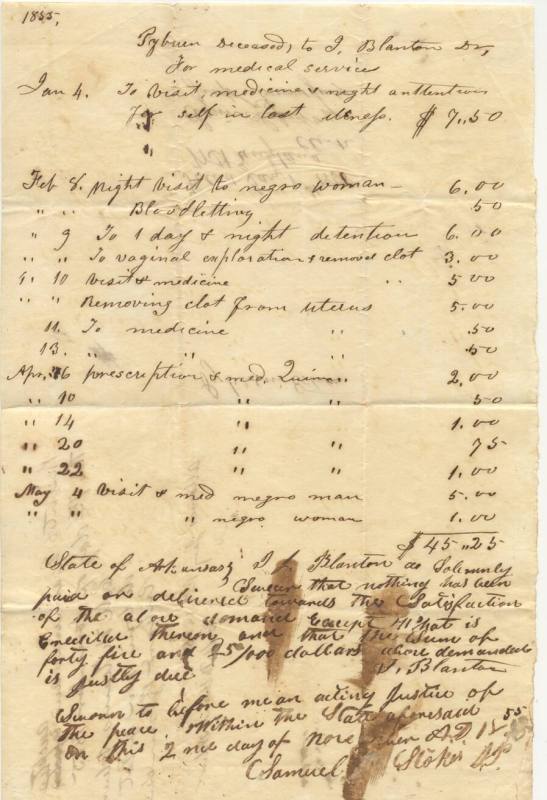 1855,
Pyburn Deceased, to J. Blanton Dr,
For medical service
Jan 4. To Visit, medicine & night anttention
For self in last illness. $ 7..50
"
Feb 8. Night visit to negro woman — 6.00
" " Bloodletting 50
" 9 To 1 day & night detention 6.00
" " To vaginal exploration & removed clot 3.00
" 10 Visit & medicine " 5.00
" " Removing clot from uterus 5.00
11. To medicine " .50
13. " " .50
Apr. 6 prescription & med. " 2.00
" 10 " " 50
" 14 " " 1.00
" 20 " " 75
" 22 " " 1.00
May 4 Visit & med negro man 5.00
" " " negro woman 1.00
$ 45..25
State of Arkansas I J. Blanton do Solemnly
Swear that nothing has been
paid or delivered towards the Satisfaction
of the above demand Except What is
Credited thereon and that the Sum of
forty five and 25/100 dollars above demanded
is justly due J. Blanton
Sworn to before me an acting Justice of
the peace Within the State aforesaid
on this 2nd day of November A.D 1855
Samuel Stokes J.P.